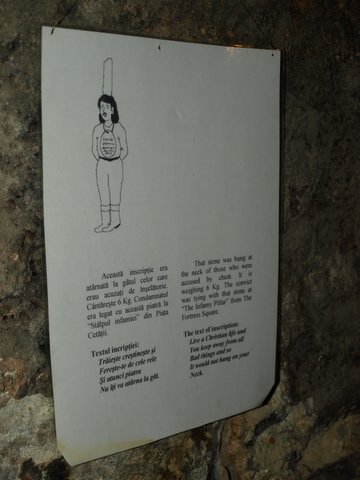 Această inscripție era
atârnată la gâtul celor care
erau acuzați de înșelătorie.
Cântărește 6 Kg. Condamnatul
era legat cu această piatră la
"Stâlpul infamiei" din Piața
Cetății.
Textul incripției:
Trăiește creștinește și
Ferește-te de cele rele
Și atunci piatra
Nu îți va atârna la gât.
That stone was hung at
the neck of those who were
accused by cheat. It is
weighing 6 Kg. The convict
was tying with that stone at
"The Infamy Pillar" from The
Fortress Square.
The text of inscription:
Live a Christian life and
You keep away from all
Bad things and so
It would not hung on your
Neck.